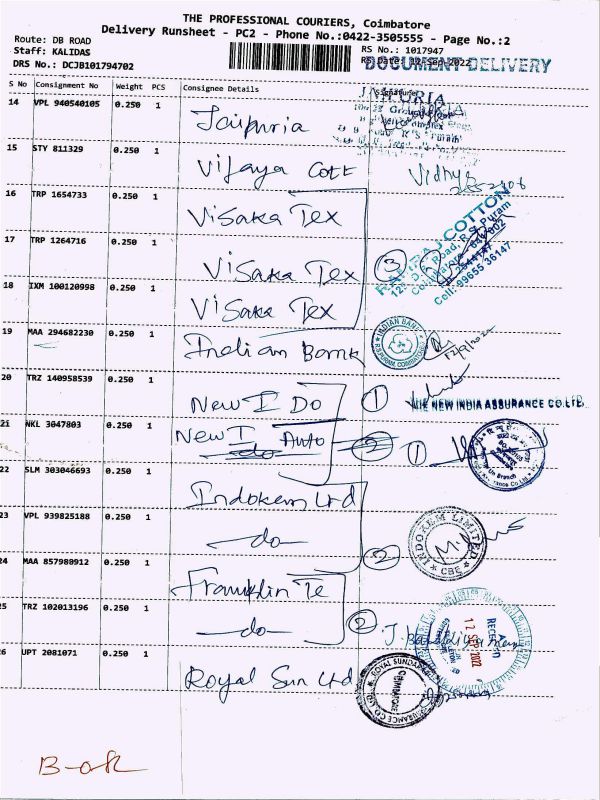 THE PROFESSIONAL COURIERS, Coimbatore
Delivery Runsheet - PC2 - Phone No.:0422-3505555 - Page No.:2
Route: DB ROAD
RS No.: 1017947
Staff: KALIDAS
RS Date: 12-Sep-2022
DOCUMENT DELIVERY
DRS No.: DCJB101794702
S No Consignment No Weight PCS Consignee Details Signature
14 VPL 940540105 0.250 1 Jaipuria
15 STY 811329 0.250 1 Vijaya Cott Vidhya
16 TRP 1654733 0.250 1 Visaka Tex
17 TRP 1264716 0.250 1 Visaka Tex 3
COTTON
R.S. Puram
Cell: 99655 36147
18 IXM 100120998 0.250 1 Visaka Tex
19 MAA 294682230 0.250 1 Indian Bank
INDIAN BANK
R.S.PURAM, COIMBATORE
20 TRZ 140958539 0.250 1 New I Do 1
THE NEW INDIA ASSURANCE CO.LTD.
21 NKL 3047803 0.250 1 New I Auto 2 1
do
22 SLM 303046693 0.250 1 Indokem Ltd
INDOKEM LIMITED
CBE
23 VPL 939825188 0.250 1 do 2
24 MAA 857980912 0.250 1 Franklin Te
25 TRZ 102013196 0.250 1 do 2
RECEIVED
12 SEP 2022
26 UPT 2081071 0.250 1 Royal Sun Ltd
ROYAL SUNDARAM
COIMBATORE
B-OK